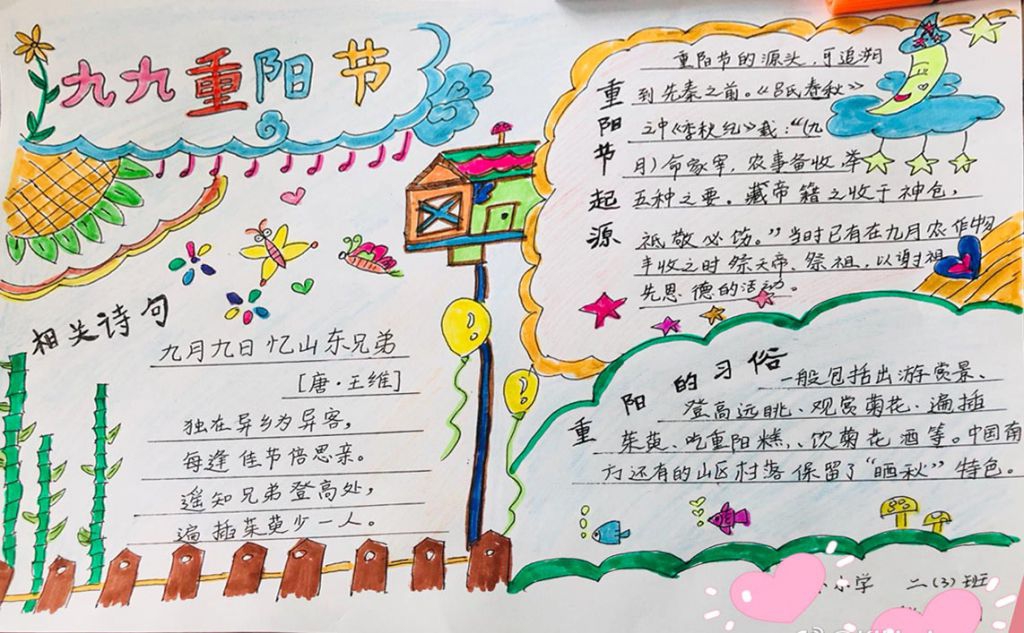 九九重阳节
相关诗句
九月九日忆山东兄弟
[唐·王维]
独在异乡为异客，
每逢佳节倍思亲。
遥知兄弟登高处，
遍插茱萸少一人。
重阳节起源
重阳节的源头，可追溯
到先秦之前。《吕氏春秋》
之中《季秋纪》载：“(九
月)命家宰，农事备收，举
五种之要。藏帝籍之收于神仓，
祗敬必饬。”当时已有在九月农作物
丰收之时祭天帝、祭祖，以谢祖
先恩德的活动。
重阳的习俗
一般包括出游赏景、
登高远眺、观赏菊花、遍插
茱萸、吃重阳糕、饮菊花酒等。中国南
方还有的山区村落保留了“晒秋”特色。
小学 二(3)班